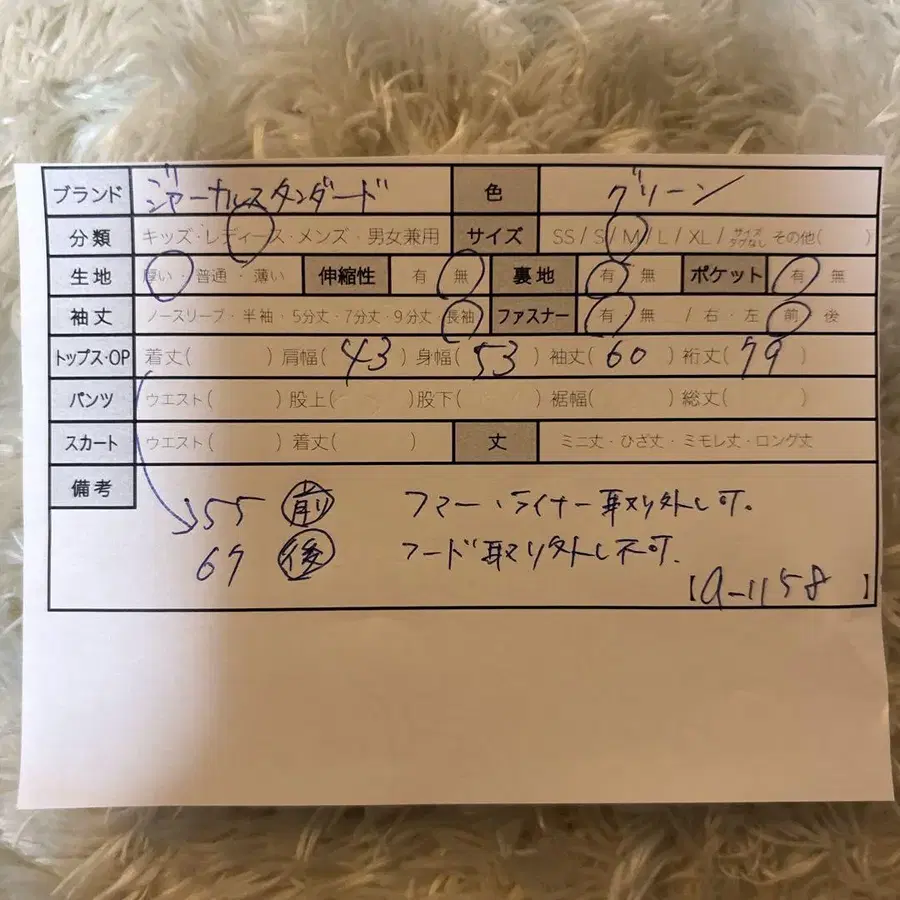 ブランド ジャーナルスタンダード 色 グリーン
分類 キッズ・レディース・メンズ・男女兼用 サイズ SS / S / M / L / XL / サイズタグなし その他( )
生地 厚い・普通・薄い 伸縮性 有 無 裏地 有 無 ポケット 有 無
袖丈 ノースリーブ・半袖・5分丈・7分丈・9分丈・長袖 ファスナー 有 無 / 右・左・前・後
トップス・OP 着丈( ) 肩幅( 43 ) 身幅( 53 ) 袖丈( 60 ) 裄丈( 79 )
パンツ ウエスト( ) 股上( ) 股下( ) 裾幅( ) 総丈( )
スカート ウエスト( ) 着丈( ) 丈 ミニ丈・ひざ丈・ミモレ丈・ロング丈
備考
55 前 ファー・ライナー取り外し可。
67 後 フード取り外し不可.
【a-1158 】